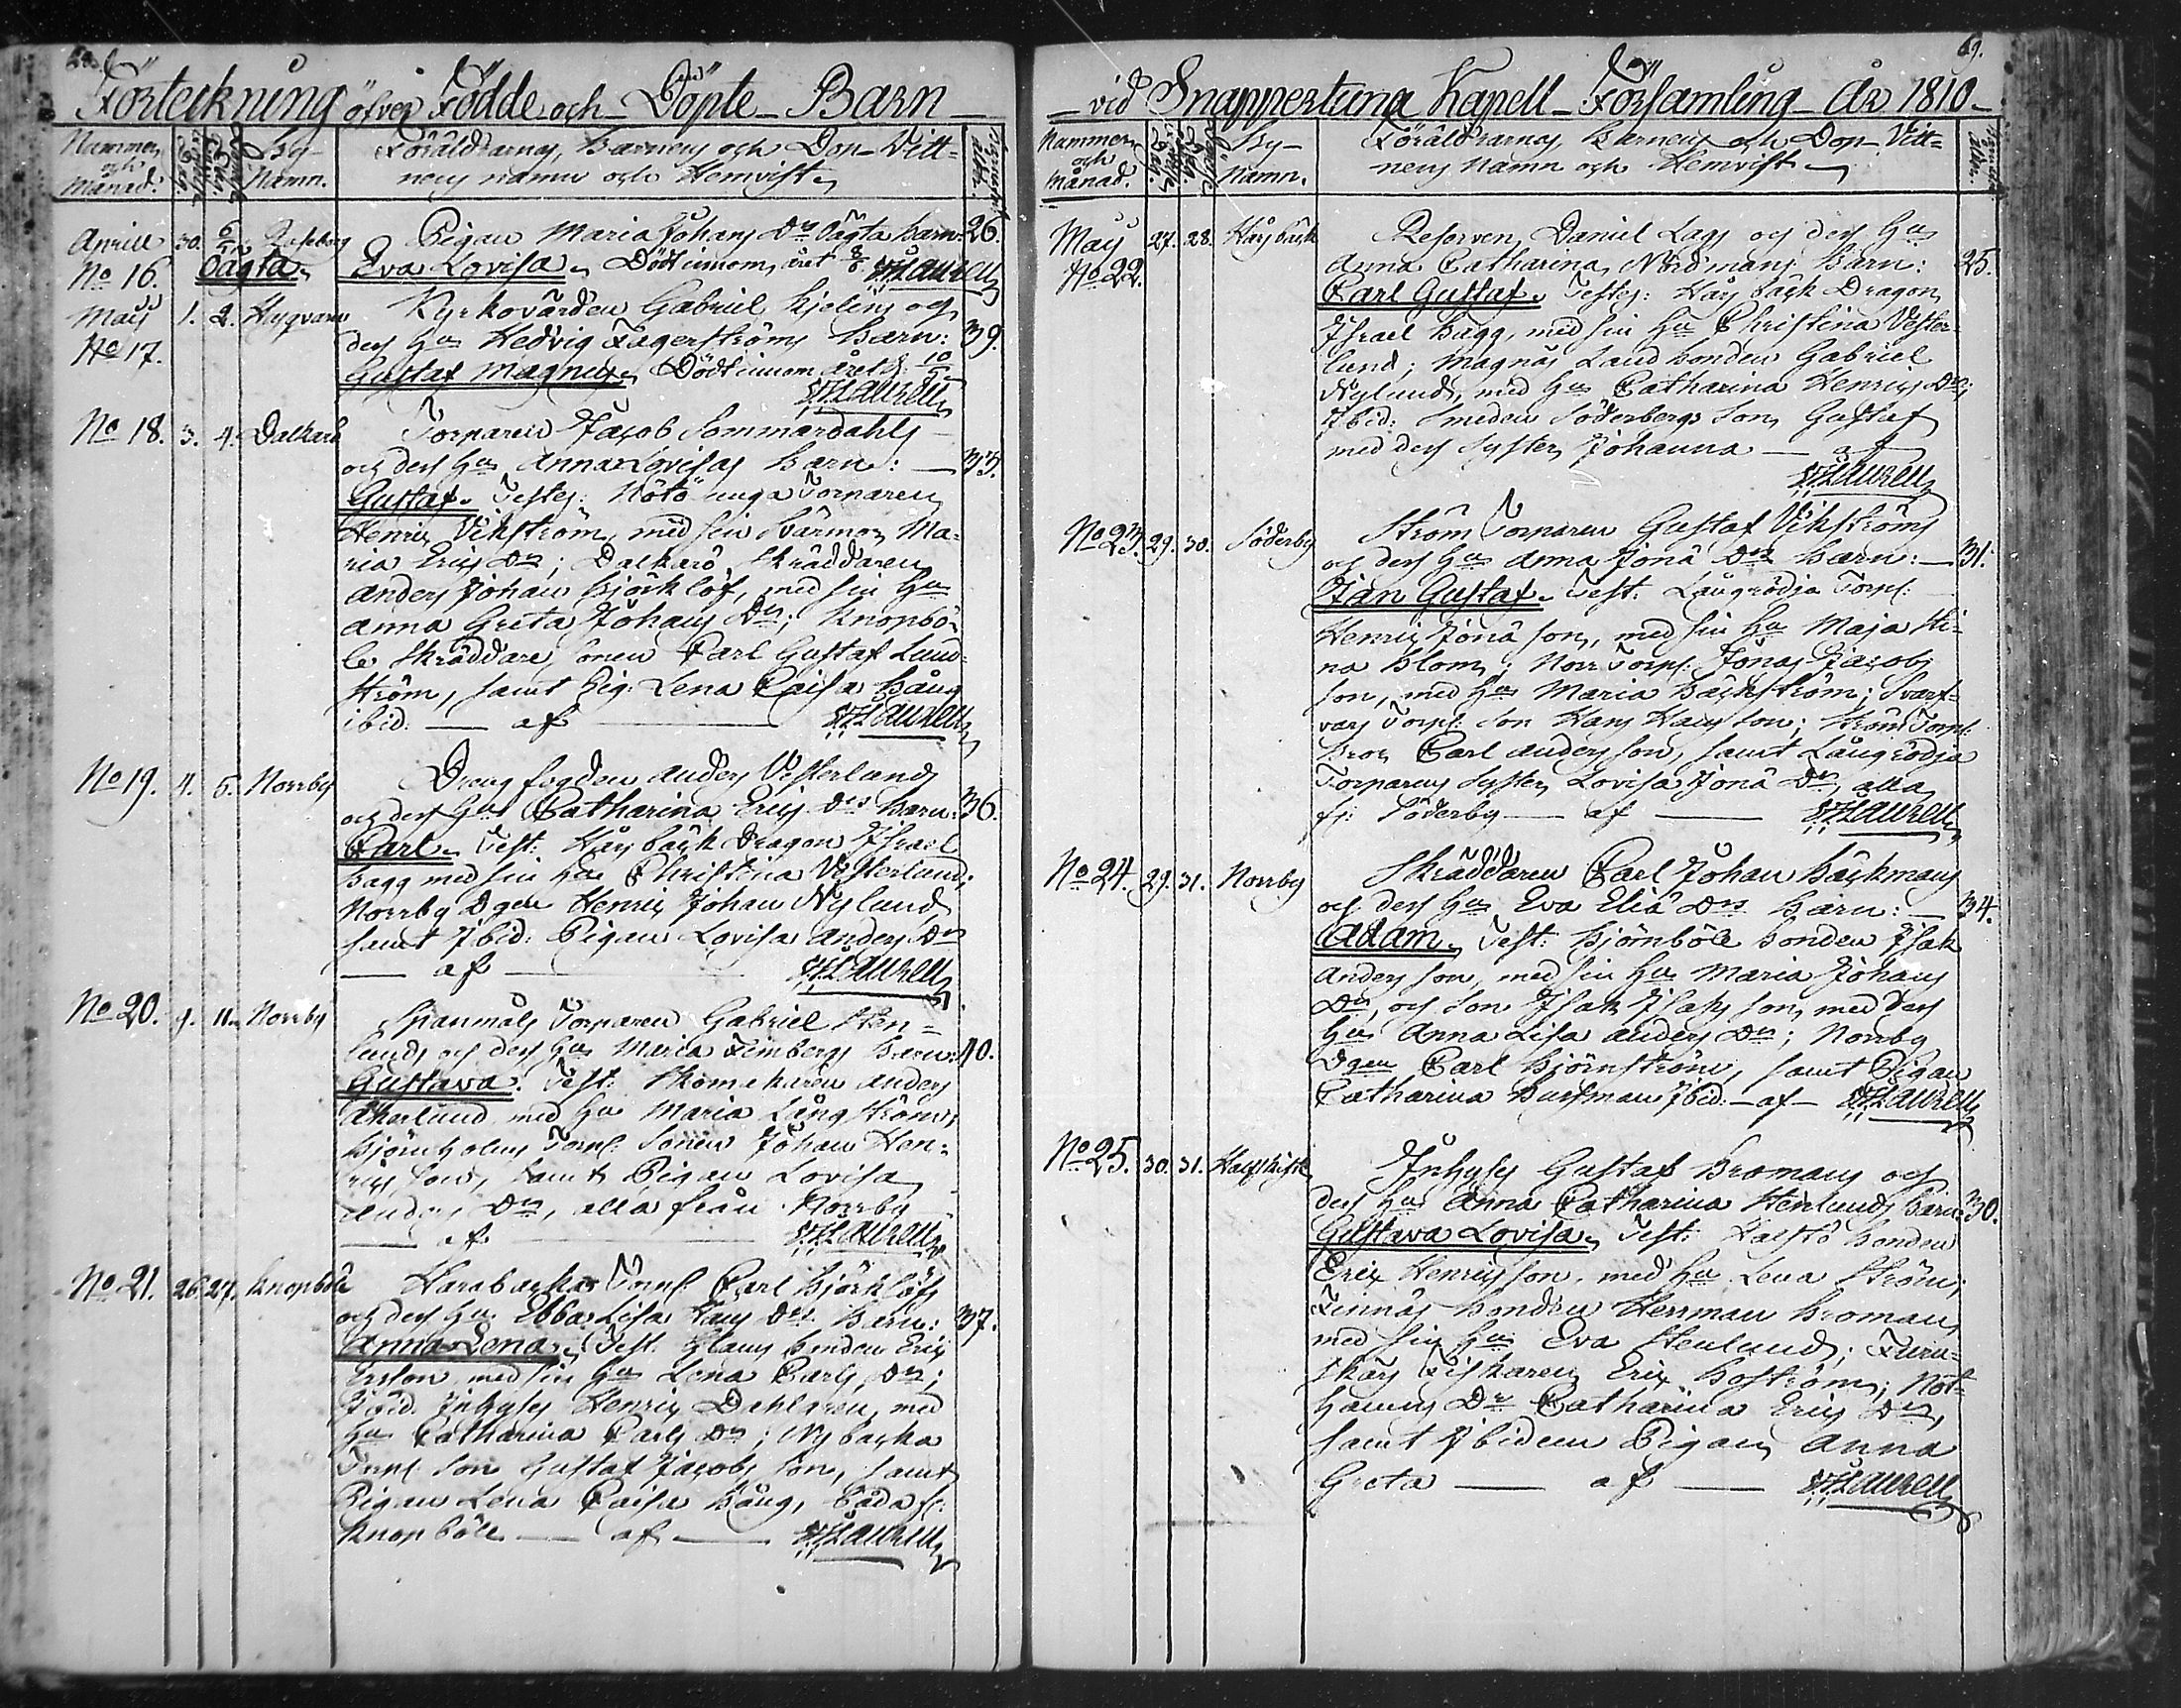 Förteckning öfver Födde och Döpte Barn
Nummer och Månad. By-Namn. Föräldrarnas, Barnens och Dop-Vitt-
nens namn och Hemvist
Aprill 30. 6/5 Raseborg Pigan Maria Johans Dr Oägta barn 26.
No 16. Oägta Eva Lovisa. Död innom året 8/6 Laurell
Maij 1. 2. Kyrkovärden Gabriel Hjelms och
No 17. dess Hu Hedvig Fagerströms Barn: 39.
Gustaf Magnus Död innom året d. 10/5
Laurell
No 18. 3. 4. Dalkarö Torparen Jacob Sommardahls
och dess Hu Anna Lovisas Barn: 33.
Gustaf. Testes: Nötö unga Torparen
Henric Vikström, med sin Svärmor Ma-
ria Erics Dr; Dalkarö Skräddaren
Anders Johan Björklöf, med sin Hu
Anna Greta Johans Dr; Knopbö-
le Skräddare sonen Carl Gustaf Lund-
ström, samt Pig: Lena Caisa Bång
ibid: af Laurell
No 19. 4. 5. Norrby Dreng fogden Anders Vesterlunds
och dess Hu Catharina Erics Drs Barn: 36.
Carl. Test: Håsbäck Dragon Israel
Bagg med sin Hu Christina Vesterlund;
Norrby Dgen Henric Johan Nylund
samt Ibid: Pigan Lovisa Anders Dr
af Laurell
No 20. 9. 11. Norrby Spanmåls Torparen Gabriel Sten-
lunds och dess Hu Maria Fembergs Barn: 40.
Gustava. Test: Skomakaren Anders
Åkerlund med Hu Maria Långström;
Björnholms Torps: Sonen Johan Hen-
rics son, samt Pigan Lovisa
Anders Dr, alla från Norrby
af Laurell
No 21. 26. 27. Knopböle Harabacka Torps: Carl Björklöfs
och dess Hu Ebba Lisa Hans Drs Barn: 37.
Anna Lena. Test. bonden Eric
Ersson med sin Hu Lena Carls Dr;
Ibid. Inhyses Henric Dahlgren, med
Hu Catharina Carls Dr; Nybacka
Torps son Gustaf Jacobs son, samt
Pigan Lena Caisa Bång, båda fr:
Knopböle af Laurell
69.
vid Snappertuna Kapell-Församling År 1810
Nummer och Månad. By-Namn. Föräldrarnas, Barnens och Dop-Vitt-
nens Namn och Hemvist
Maij 27. 28. Håsbäck Reserven Daniel Lags och dess Hu
No 22. Anna Catharina Nordmans Barn: 25.
Carl Gustaf. Testes: Håsbäck Dragon
Israel Bagg, med sin Hu Christina Vester-
lund; Magnäs Landbonden Gabriel
Nylund, med Hu Catharina Henrics Dr;
Ibid: Smeden Söderbergs Son Gustaf
med dess Syster Johanna af
Laurell
No 23. 29. 30. Söderby Ström Torparen Gustaf Vikströms
och dess Hu Anna Jonä Drs Barn: 31.
Jan Gustaf. Test: Långrödja Torps:
Henric Jonä son, med sin Hu Maja Sti-
na Blom; Norr Torps: Jonas Jacobs
son, med Hu Maria Bäckström; Svart-
vars Torps: son Hans Hans son; Ström Torps:
Bror Carl Anders son, samt Långrödja
Torparens Syster Lovisa Jonä Dr, alla
fr: Söderby af Laurell
No 24. 29. 31. Norrby Skräddaren Carl Johan Bäckmans
och dess Hu Eva Eliä Drs Barn: 34.
Adam. Test: Björnböle bonden Isak
Anders son, med sin Hu Maria Johans
Dr, och Son Isak Isaks son, med dess
Hu Anna Lisa Anders Dr; Norrby
Dgen Carl Björnström, samt Pigan
Catharina Ibid: af Laurell
No 25. 30. 31. Inhyses Gustaf Bromans och
dess Hu Anna Catharina Stenlunds Barn: 30.
Gustava Lovisa. Test: Halstö bonden
Eric Henrics son, med Hu Lena Ström;
Finnäs bonden Herrman Broman
med sin Hu Eva Stenlund; Furu-
skärs Fiskaren Eric Boström; Not-
hamns Dr Catharina Erics Dr,
samt Ibidem Pigan Anna
Greta af Laurell